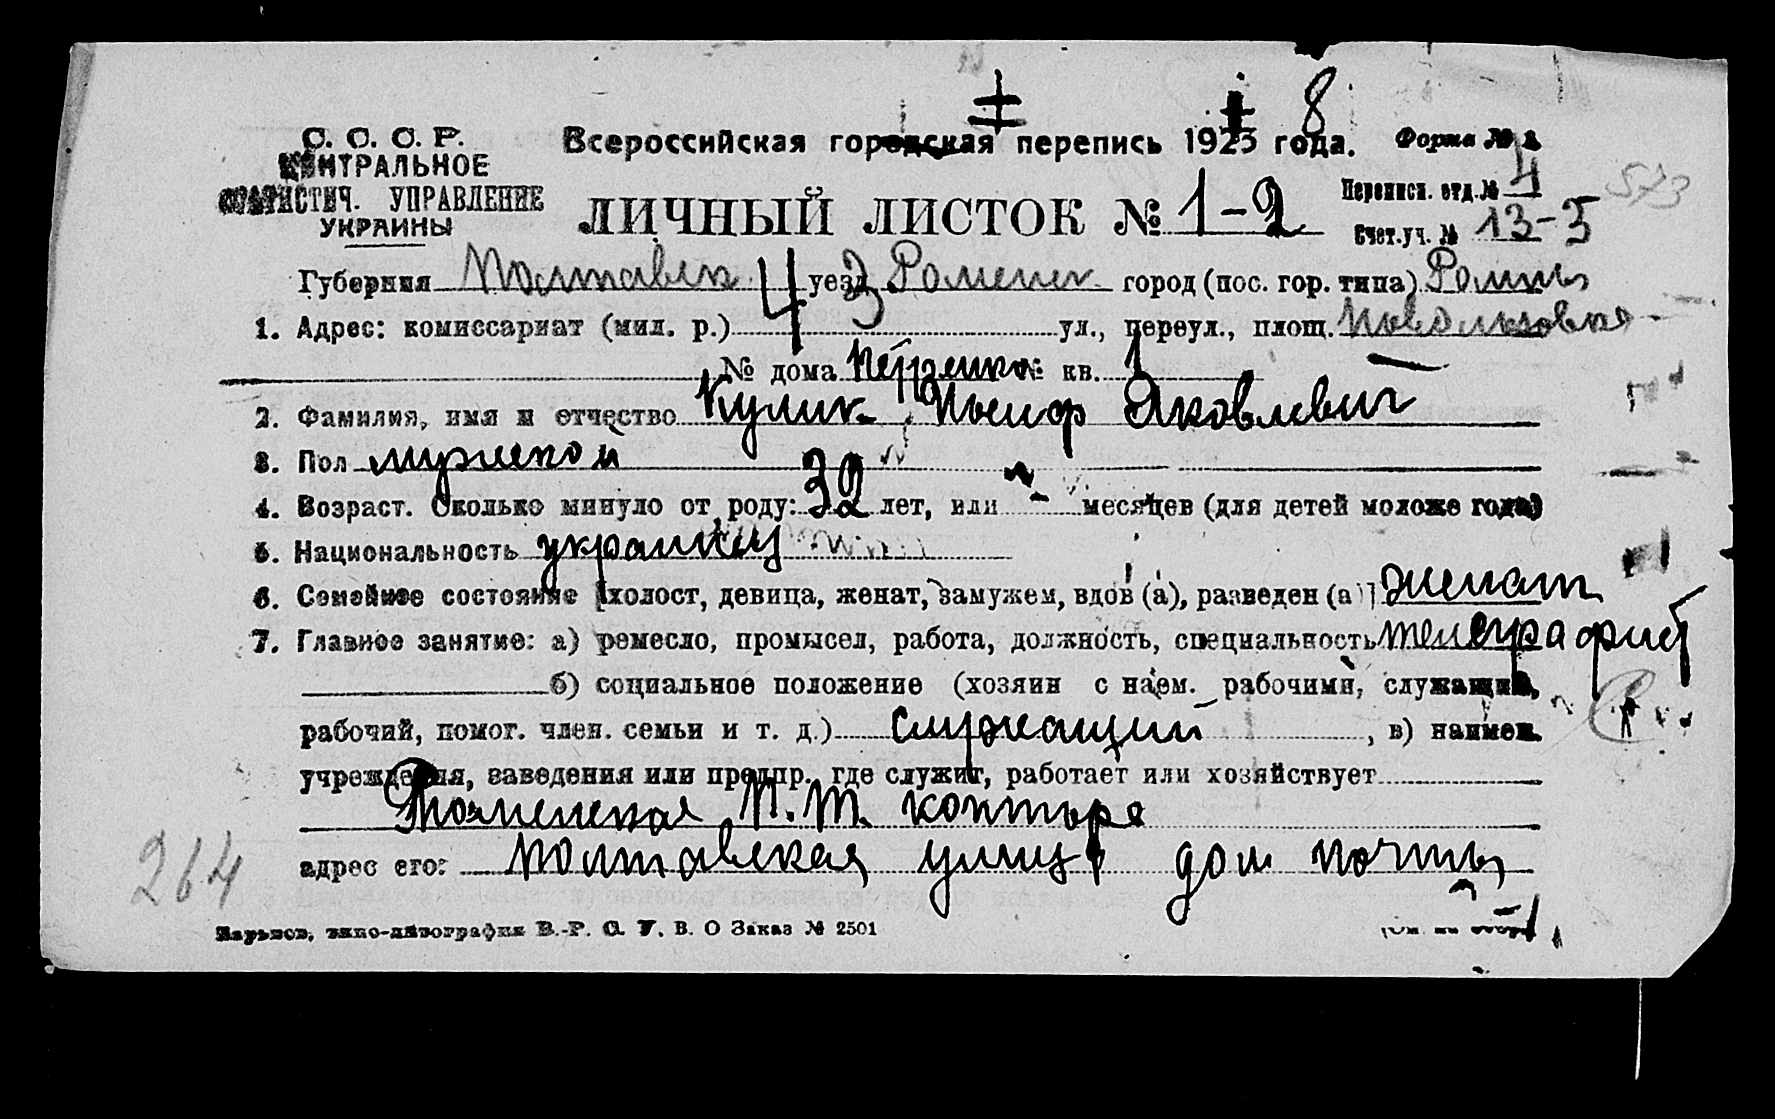 С. С. С. Р.
ЦЕНТРАЛЬНОЕ
СТАТИСТИЧ. УПРАВЛЕНИЕ
УКРАИНЫ
Всероссийская городская перепись 1923 года.
8
Форма № 2
ЛИЧНЫЙ ЛИСТОК № 1-2
Переписн. отд. № 4
573
Счет. уч. № 13-3
Губерния Полтавск 4 уезд 3 Роменск город (пос. гор. типа) Ромны
1. Адрес: комиссариат (мил. р.) ул., переул., площ.
№ дома Петренко № кв. 1
2. Фамилия, имя и отчество Кулик Иосиф Яковлевич
3. Пол мужской
4. Возраст. Сколько минуло от роду: 32 лет, или - месяцев (для детей моложе года)
5. Национальность украинец
6. Семейное состояние [холост, девица, женат, замужем, вдов (а), разведен (а)] женат
7. Главное занятие: а) ремесло, промысел, работа, должность, специальность телеграфист
б) социальное положение (хозяин с наем. рабочими, служащий,
рабочий, помог. член. семьи и т. д.) служащий, в) наимен.
учреждения, заведения или предпр., где служит, работает или хозяйствует
Роменская П. Т. контора
адрес его: Полтавская улица дом почты
264
Харьков, типо-литография В.-Р. С. У. В. О Заказ № 2501